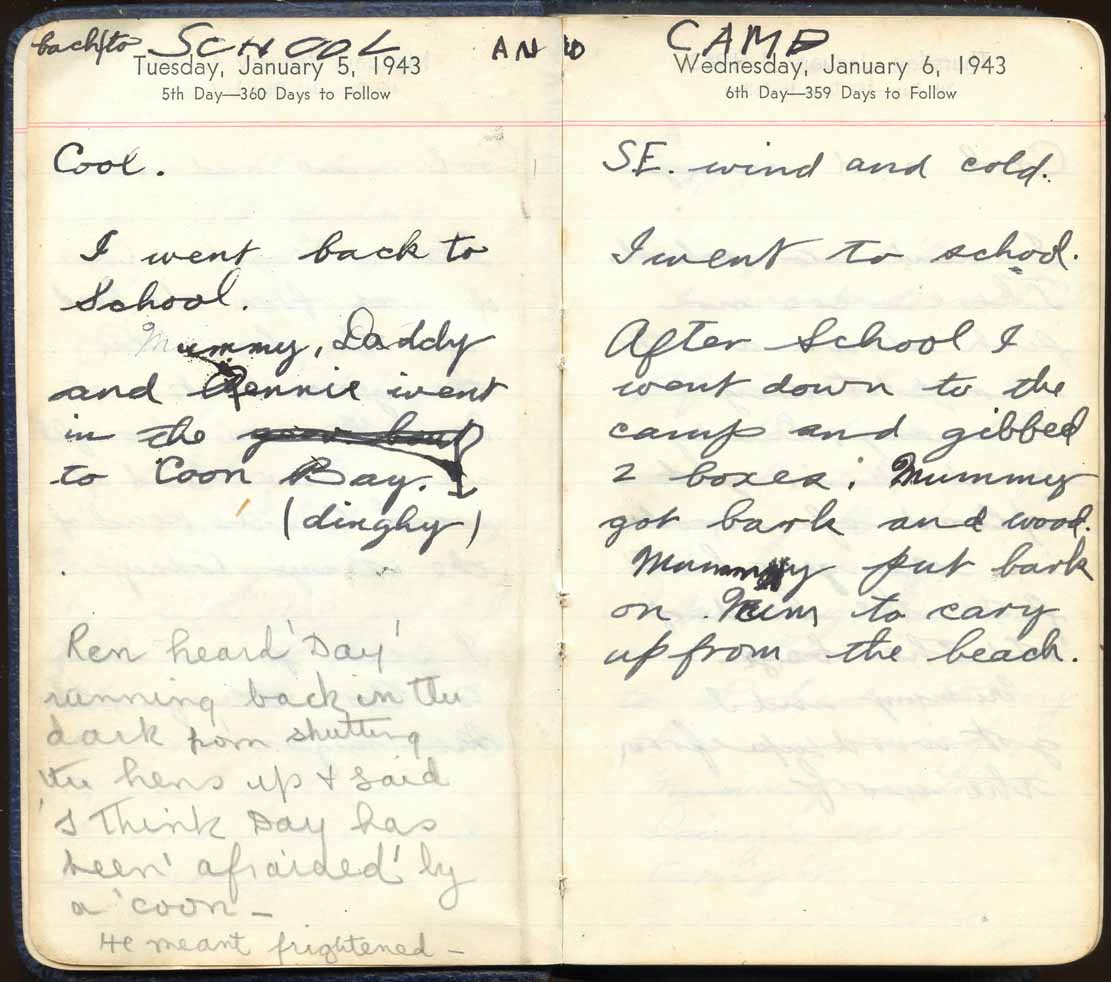 back to SCHOOL AND
Tuesday, January 5, 1943
5th Day—360 Days to Follow
Cool.
I went back to
School.
Mummy, Daddy
and Rennie went
in the
to 'Coon Bay.
(dinghy)
Ren heard 'Day'
running back in the
dark from shutting
the hens up & said
'I think Day has
been 'afraided' by
a 'coon –
He meant frightened –
CAMP
Wednesday, January 6, 1943
6th Day—359 Days to Follow
S.E. wind and cold.
I went to school.
After School I
went down to the
camp and gibbed
2 boxes; Mummy
got bark and wood.
Mummy put bark
on to cary
up from the beach.